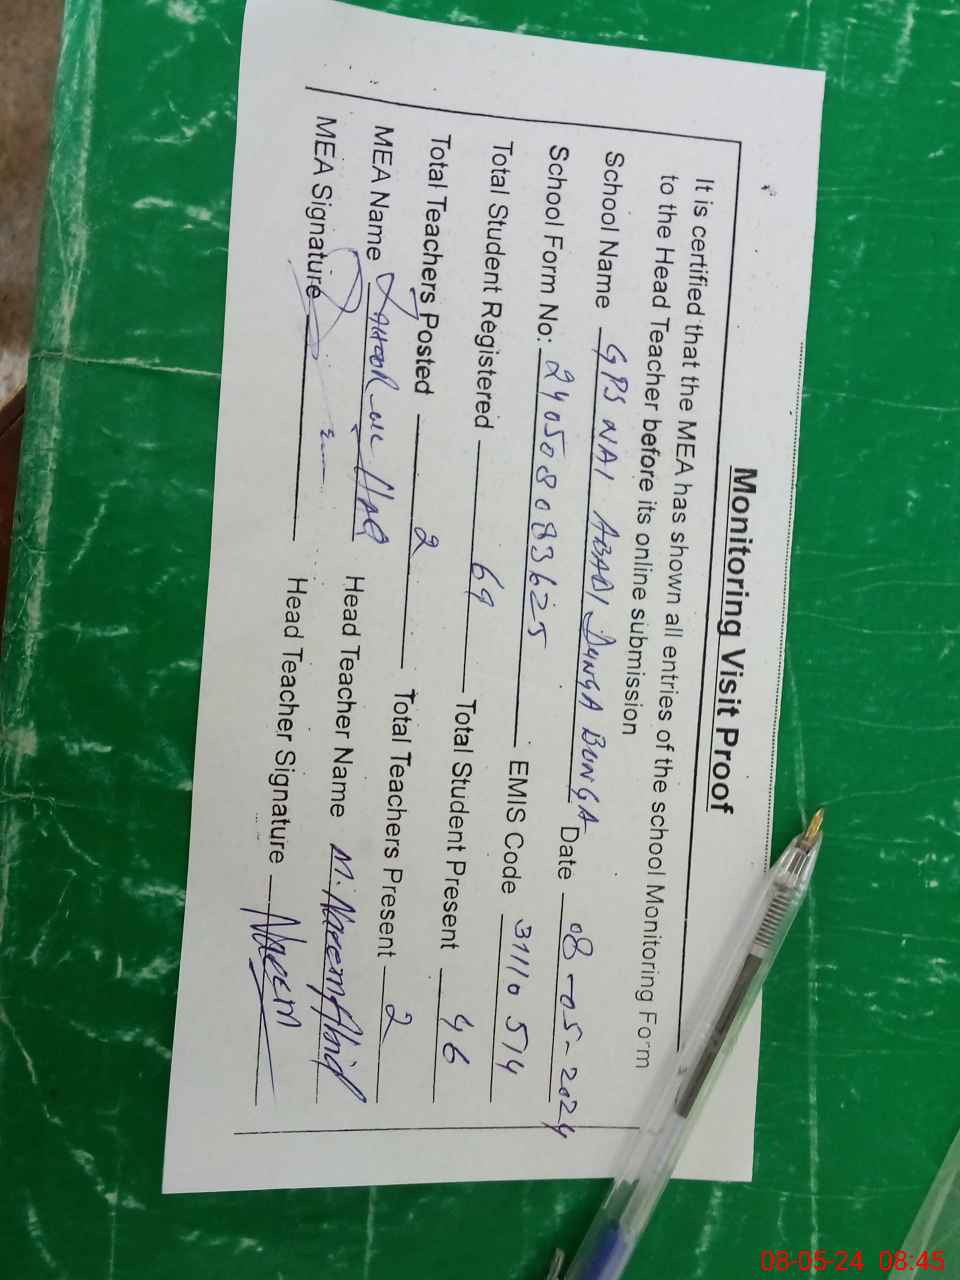 Monitoring Visit Proof
It is certified that the MEA has shown all entries of the school Monitoring Form
to the Head Teacher before its online submission
School Name GPS NAI ABADI DUNGA BUNGA Date 08-05-2024
School Form No: 24050808083625 EMIS Code 31110514
Total Student Registered 69 Total Student Present 46
Total Teachers Posted 2 Total Teachers Present 2
MEA Name ul HAQ Head Teacher Name M. Naeem Abid
MEA Signature Head Teacher Signature Naeem
08-05-24 08:45